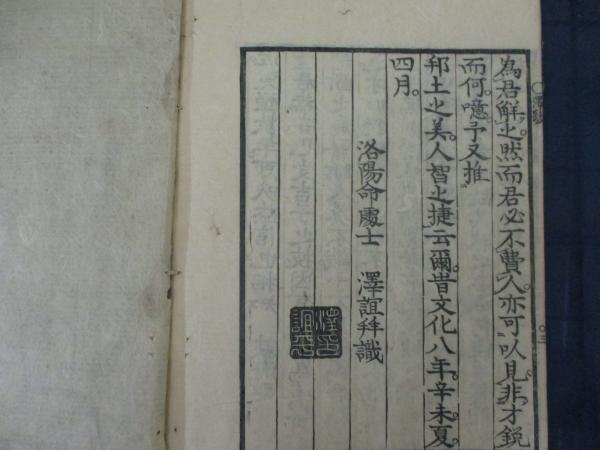 為君解之然而君必不費人亦可以見非才鋭
而何噫予又推
邦土之美人智之捷云爾昔文化八年辛未夏
四月
洛陽命處士 澤誼拜識